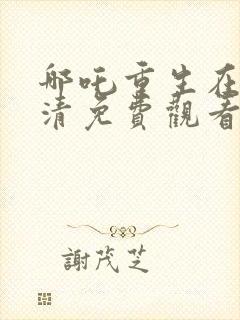 哪吒重生在
清免費觀看
謝茂芝